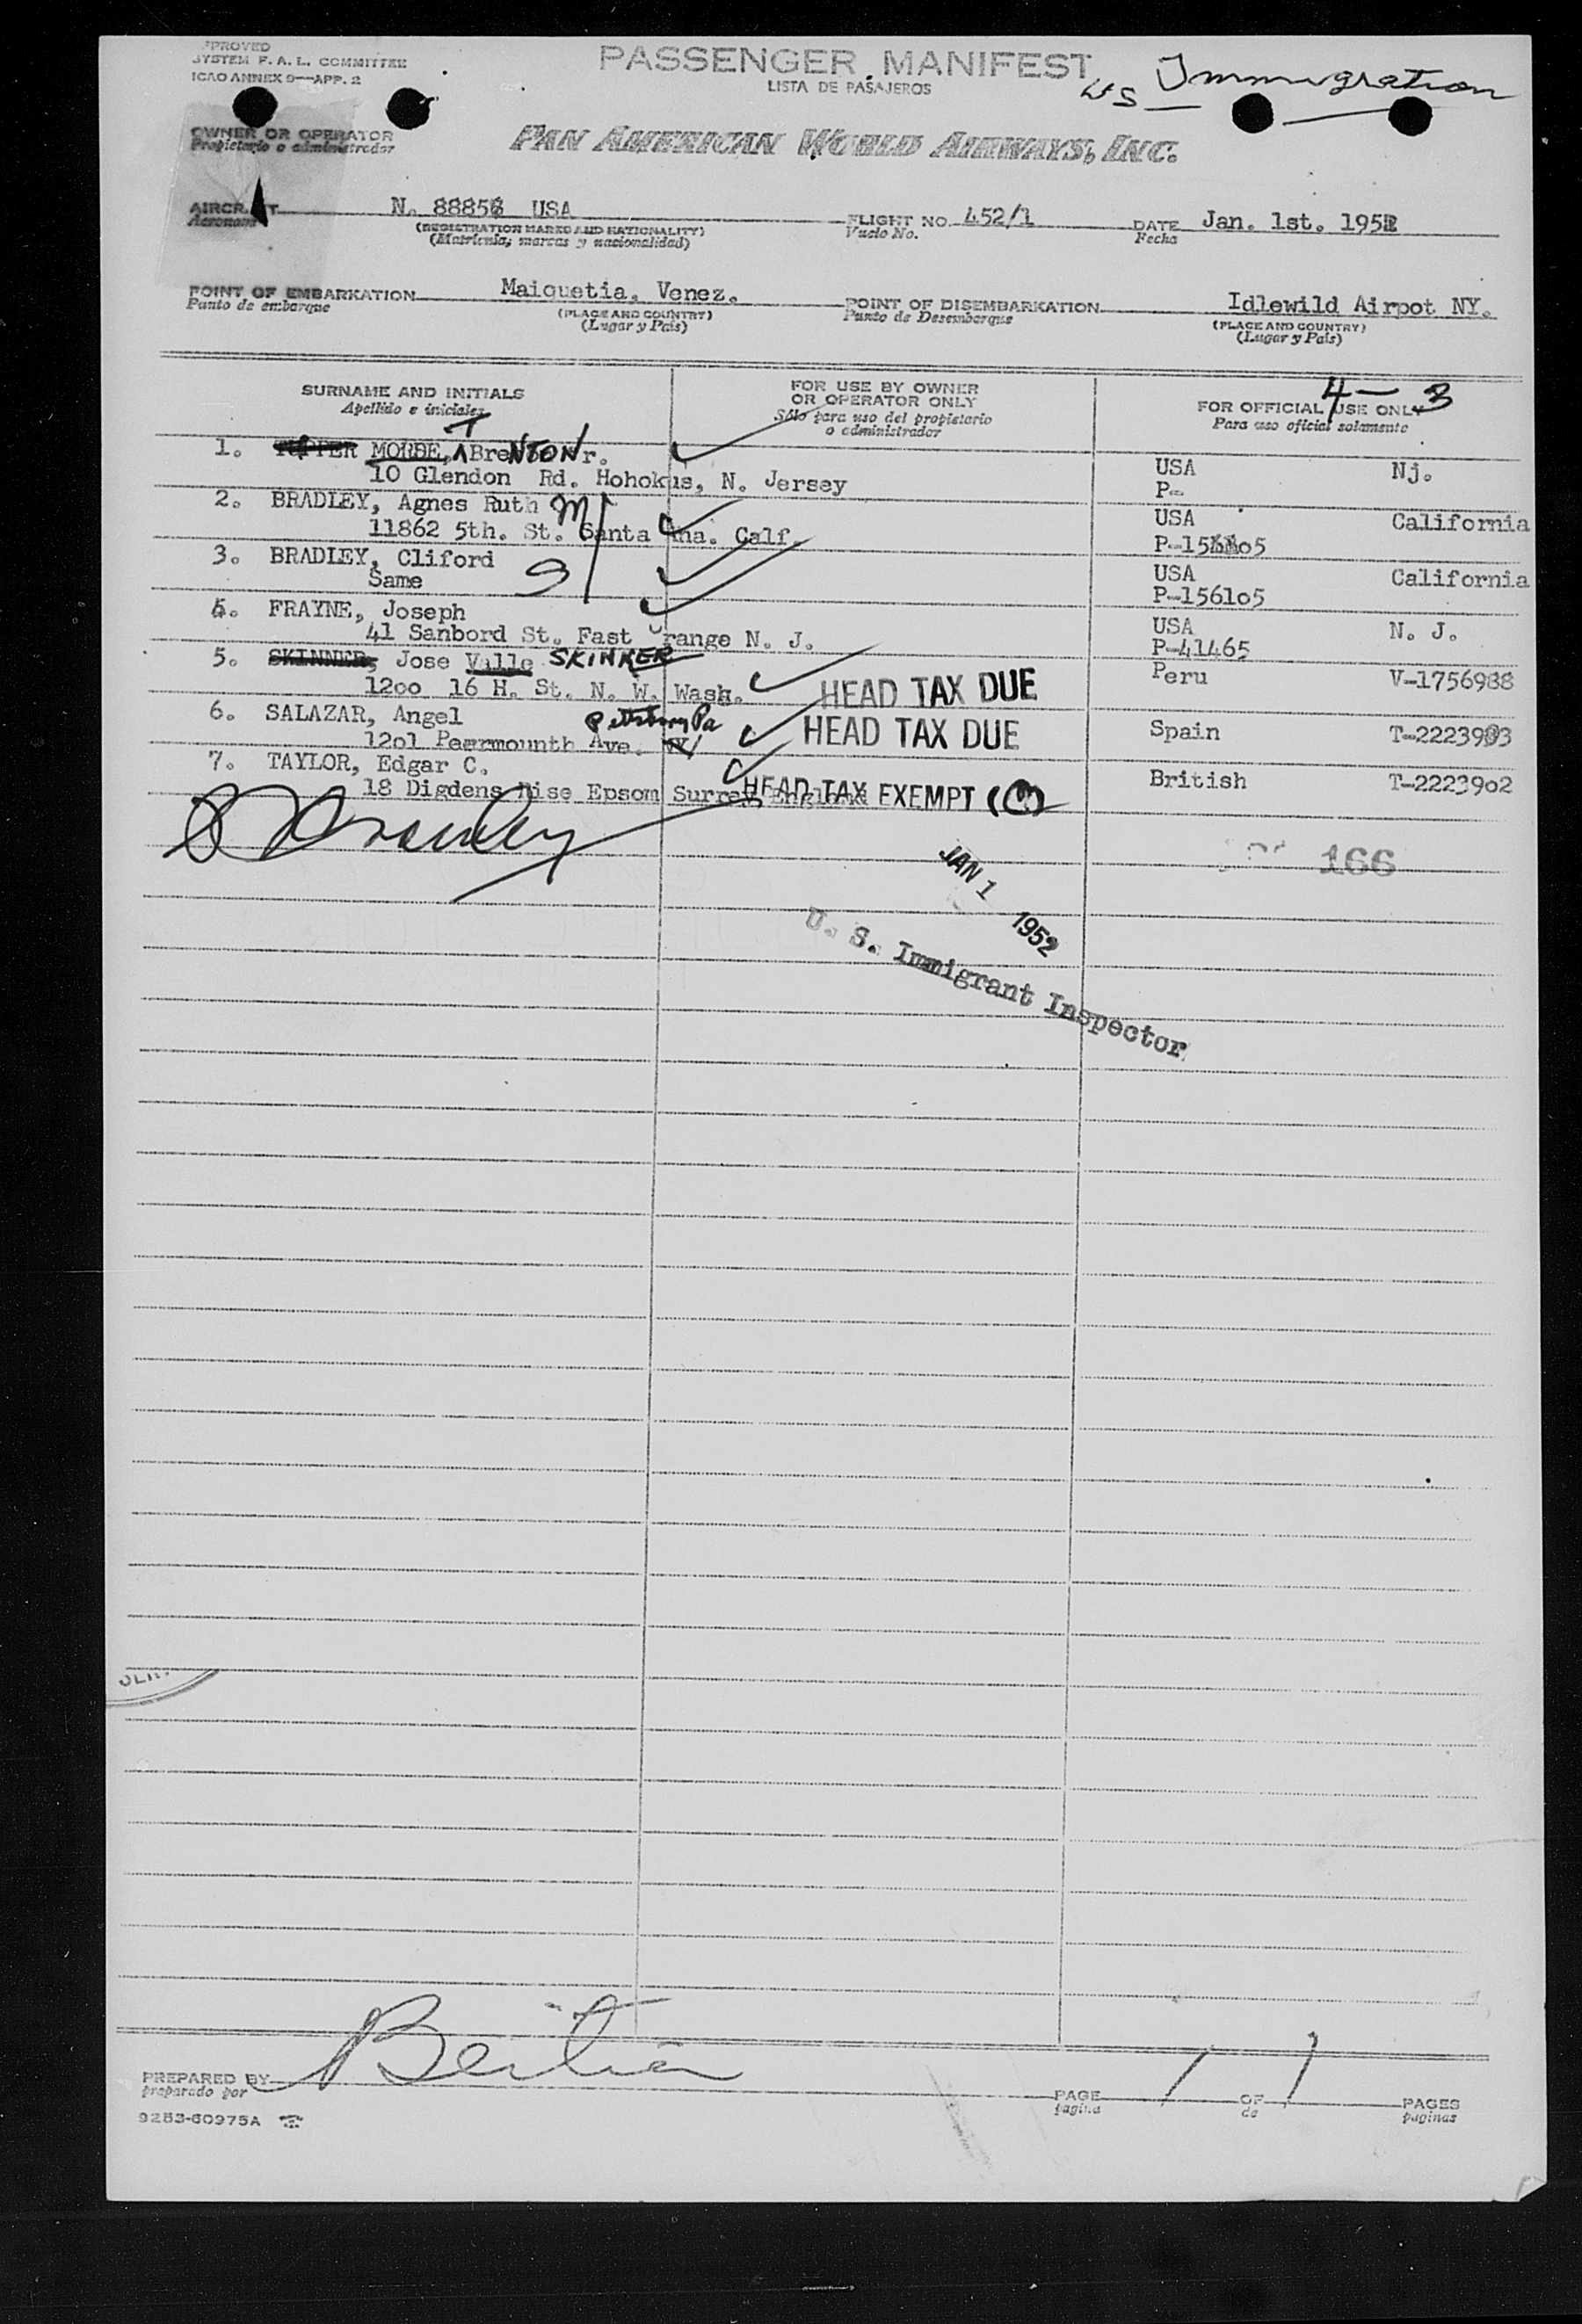 PROVED
SYSTEM F. A. L. COMMITTEE
ICAO ANNEX 9—APP. 2
PASSENGER MANIFEST
LISTA DE PASAJEROS
US Immigration
OWNER OR OPERATOR
Propietario o administrador
PAN AMERICAN WORLD AIRWAYS, INC.
AIRCRAFT N. 8885 USA FLIGHT NO. 452/1 DATE Jan. 1st. 1952
Aeronave (REGISTRATION MARKS AND NATIONALITY) Vuelo No. Fecha
(Matricula, marcas y nacionalidad)
POINT OF EMBARKATION Maiquetia, Venez. POINT OF DISEMBARKATION Idlewild Airpot NY.
Punto de embarque (PLACE AND COUNTRY) Punto de Desembarque (PLACE AND COUNTRY)
(Lugar y Pais) (Lugar y Pais)
SURNAME AND INITIALS FOR USE BY OWNER OR OPERATOR ONLY FOR OFFICIAL USE ONLY 4 — 3
Apellido e iniciales Sólo para uso del propietario o administrador Para uso oficial solamente
1. MORDE, T BreNTON r. USA Nj.
10 Glendon Rd. Hohokus, N. Jersey P-
2. BRADLEY, Agnes Ruth M USA California
11862 5th. St. Santa Ana. Calf. P-15 1o5
3. BRADLEY, Cliford USA California
Same P-1561o5
4. FRAYNE, Joseph USA N. J.
41 Sanbord St. Fast Orange N. J. P-41465
5. SKINNER, Jose Valle SKINKER Peru V-1756988
12oo 16 H. St. N. W. Wash. HEAD TAX DUE
6. SALAZAR, Angel Pa Spain T-2223903
12o1 Peermounth Ave. HEAD TAX DUE
7. TAYLOR, Edgar C. British T-22239o2
18 Digdens Rise Epsom Surrey England HEAD TAX EXEMPT
166
JAN 1 1952
U. S. Immigrant Inspector
PREPARED BY PAGE 1 OF 1 PAGES
preparado por pagina de paginas
9283-60975A